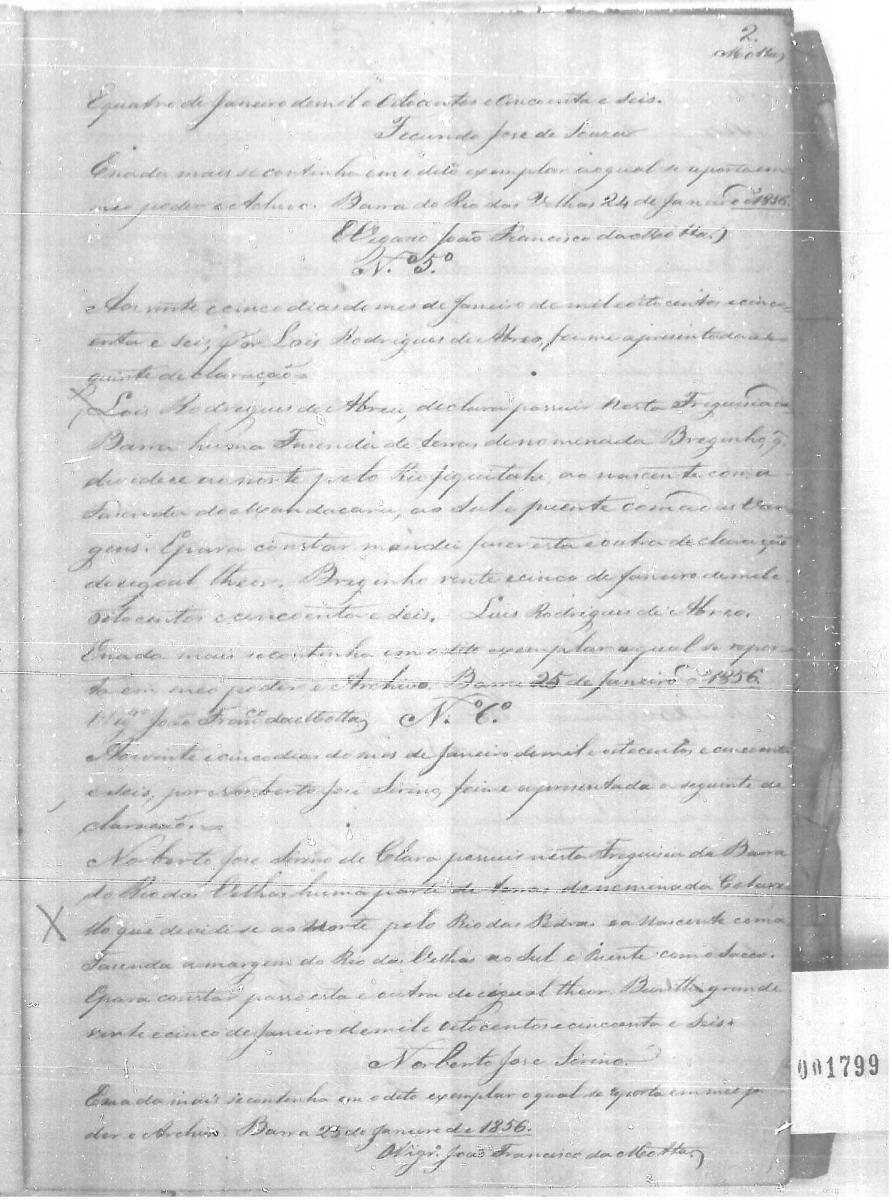 2.
Motta
E quatro de Janeiro de mil e Oitocentos e Cincoenta e Seis.
Fecundo José de Souza
E nada mais se continha em o dito exemplar ao qual se reporta em
meo poder e Achivo. Barra do Rio das Velhas 24 de Janeiro de 1856.
O Vigario João Francisco da Motta
N.º 5.º
Aos vinte e cinco dias do mes de Janeiro de mil e oito centos e cinco-
enta e seis, por Lois Rodrigues de Abreo, foi me apresentada a se-
guinte declaração =
Lois Rodrigues de Abreu, declara possuir nesta Freguesia da
Barra huma Fasenda de terras denomenada Breginho, q.
devidece ao norte pelo Rio Jiquitahi, ao nascente com a
Fasenda do Mandacaru, ao Sul e puente com as Var-
gens. E para constar mandei faser esta e outra declaração
de igoal theor. Breginho vente e cinco de Janeiro de mil e
oitocentos e cincoenta e seis. Luis Rodrigues de Abreo.
E nada mais se continha em o dito exemplar a qual se repor-
ta em meo poder e Archivo. Barra 25 de Janeiro de 1856.
O Vigr.º João Fran.co da Motta N.º 6.º
Aos vinte e cinco dias do mes de Janeiro de mil e oitocentos e cincoenta
e seis, por Norberto José Sirino, foi me apresentada a seguinte de
claração. =
Norberto José Sirino de Clara possuir nesta Freguisia da Barra
do Rio das Velhas huma parte de terras denominada
que devide-se ao Norte pelo Rio das Pedras e a Nascente com a
Fasenda a margem do Rio das Velhas ao Sul e Puente com o Sacco.
E para constar passo esta e outra de igual theor. grande
vente e cinco de Janeiro de mil e Oitocentos e cincoenta e Seis.
Norberto José Sirino.
E nada mais se continha em o dito exemplar o qual se reporta em meo po
der e Archivo Barra 25 de Janeiro de 1856.
O Vigr.º João Francisco da Motta
001799